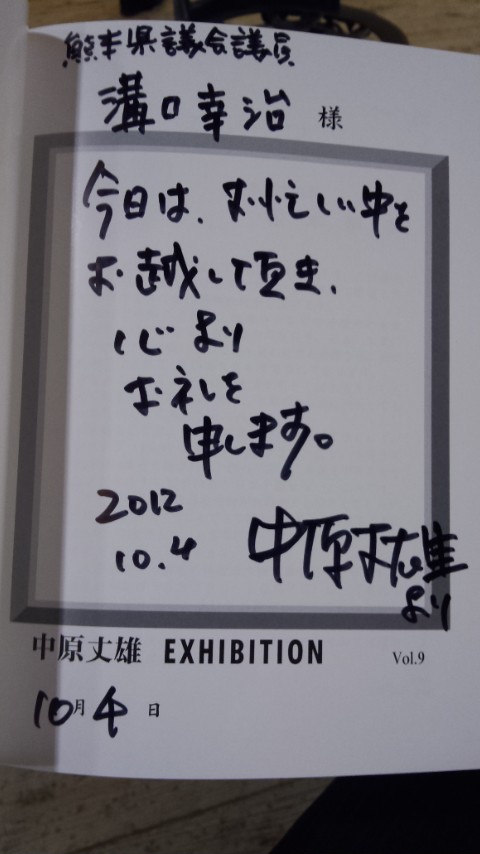 熊本県議会議員
溝口幸治 様
今日は、お忙しい中を
お越して頂き、
心より
お礼を
申します。
2012
10.4
中原丈雄
より
中原丈雄 EXHIBITION Vol.9
10月4日